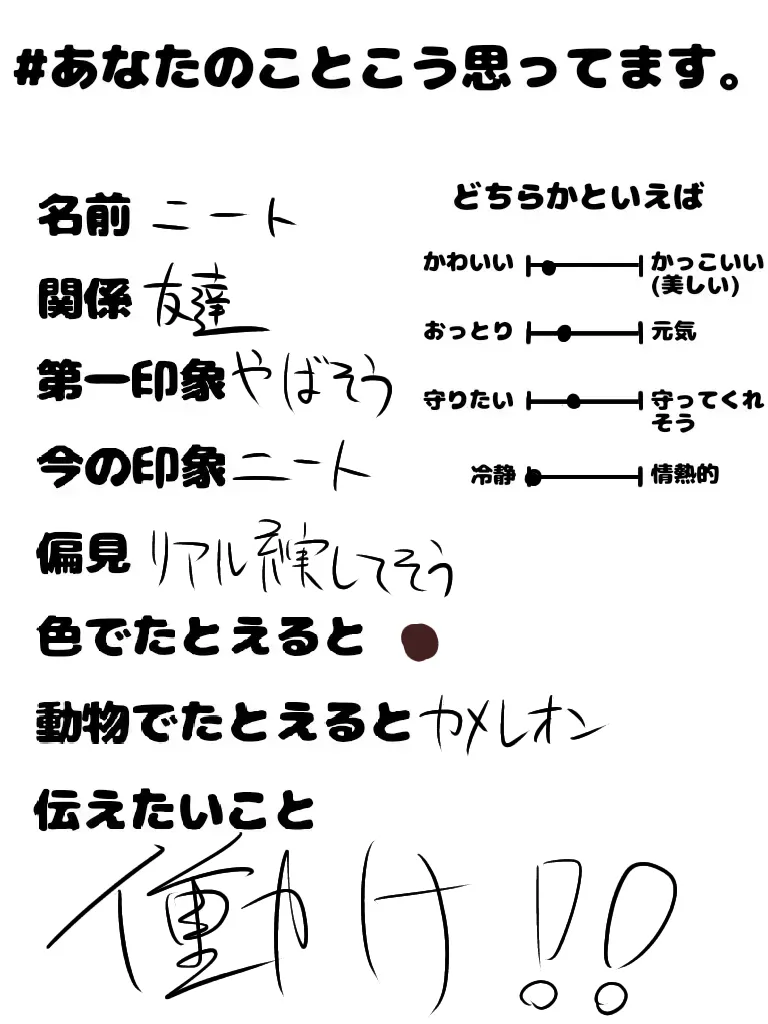 #あなたのことこう思ってます。
名前 ニート
関係 友達
第一印象 やばそう
今の印象 ニート
偏見 リアル充実してそう
色でたとえると
動物でたとえると カメレオン
伝えたいこと
働け!!
どちらかといえば
かわいい かっこいい
(美しい)
おっとり 元気
守りたい 守ってくれ
そう
冷静 情熱的